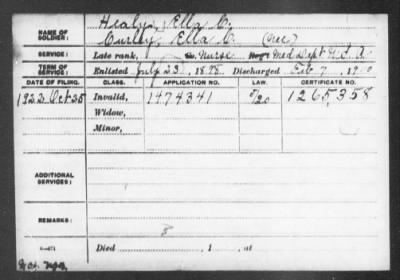 NAME OF SOLDIER: Healy, Ella C.
Curley, Ella C. (nee)
SERVICE: Late rank, Nurse Med Dept U.S.A.
TERM OF SERVICE: Enlisted July 23, 1898 Discharged Feb. 7, 19
DATE OF FILING. CLASS. APPLICATION NO. LAW. CERTIFICATE NO.
1923 Oct 25 Invalid, 1474341 1265,358
Widow,
Minor,
ADDITIONAL SERVICES:
REMARKS:
Died , 1 , at